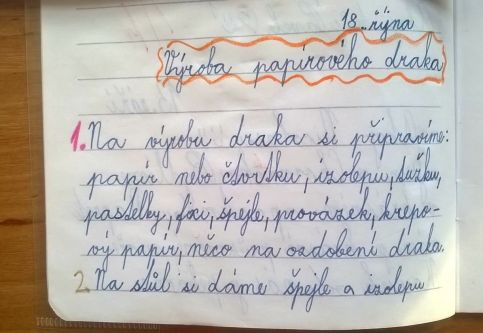 18. října
Výroba papírového draka
1. Na výrobu draka si připravíme:
papír nebo čtvrtku, izolepu, tužku,
pastelky, fixi, špejle, provázek, krepo-
vý papír, něco na ozdobení draka.
2 Na stůl si dáme špejle a izolepu